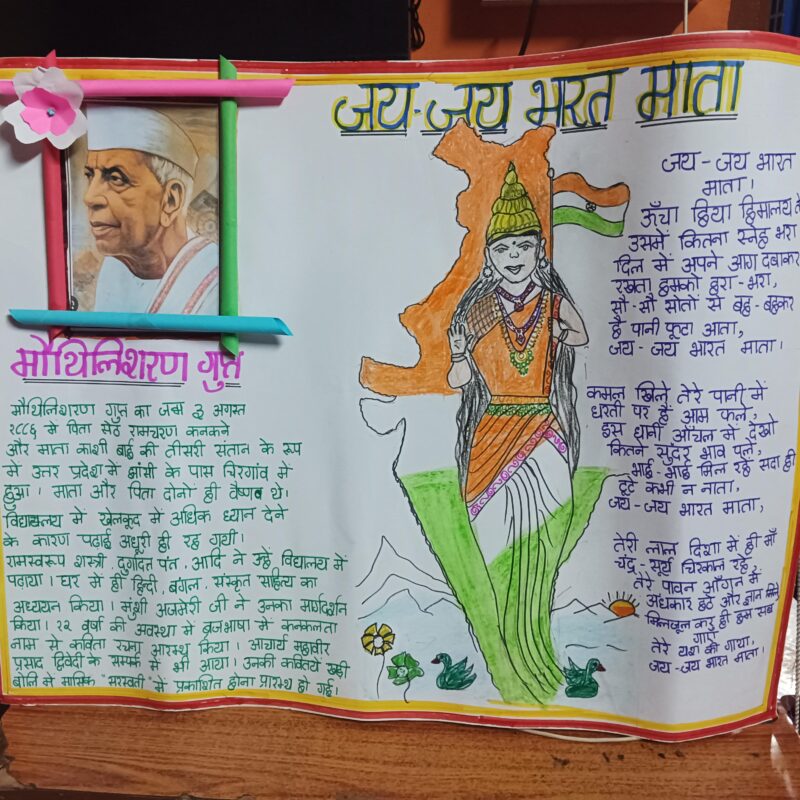 जय-जय भारत माता
मौथिलिशरण गुप्त
मौथिलिशरण गुप्त का जन्म ३ अगस्त
१८८६ में पिता सेठ रामचरण कनकने
और माता काशी बाई की तीसरी संतान के रूप
में उत्तर प्रदेश में झांसी के पास चिरगांव में
हुआ। माता और पिता दोनो ही वैष्णव थे।
विद्यालय में खेलकूद में अधिक ध्यान देने
के कारण पढाई अधूरी ही रह गयी।
रामस्वरूप शास्त्री, दुर्गादत्त पंत, आदि ने उन्हें विद्यालय में
पढ़ाया। घर में ही हिन्दी, बंगला, संस्कृत साहित्य का
अध्ययन किया। मुंशी अजमेरी जी ने उनका मार्गदर्शन
किया। १२ वर्षा की अवस्था में ब्रजभाषा में कनकलता
नाम से कविता रचना आरम्भ किया। आचार्य महावीर
प्रसाद द्विवेदी के सम्पर्क में भी आया। उनकी कवितये खड़ी
बोलि मे मासिक "सरस्वती" में प्रकाशित होना प्रारम्भ हो गई।
जय-जय भारत
माता।
ऊँचा हिया हिमालय ते
उसमें कितना स्नेह भरा
दिल में अपने आग दबाकर
रखता हमको हरा-भरा,
सौ-सौ सोतो से बह-बहकर
है पानी फूटा आता,
जय-जय भारत माता।
कमल खिले तेरे पानी में
धरती पर हैं आम फले,
इस धानी आँचल में देखो
कितने सुंदर भाव पले,
भाई-भाई मिल रहें सदा ही
टूटे कभी न नाता,
जय-जय भारत माता,
तेरी लाल दिशा में ही माँ
चंद्र-सूर्य चिरकाल रहें,
तेरे पावन आँगन में
अंधकार हटे और ज्ञान मिले
मिलजूल कर ही हम सब
गाये
तेरे यश की गाथा,
जय-जय भारत माता।